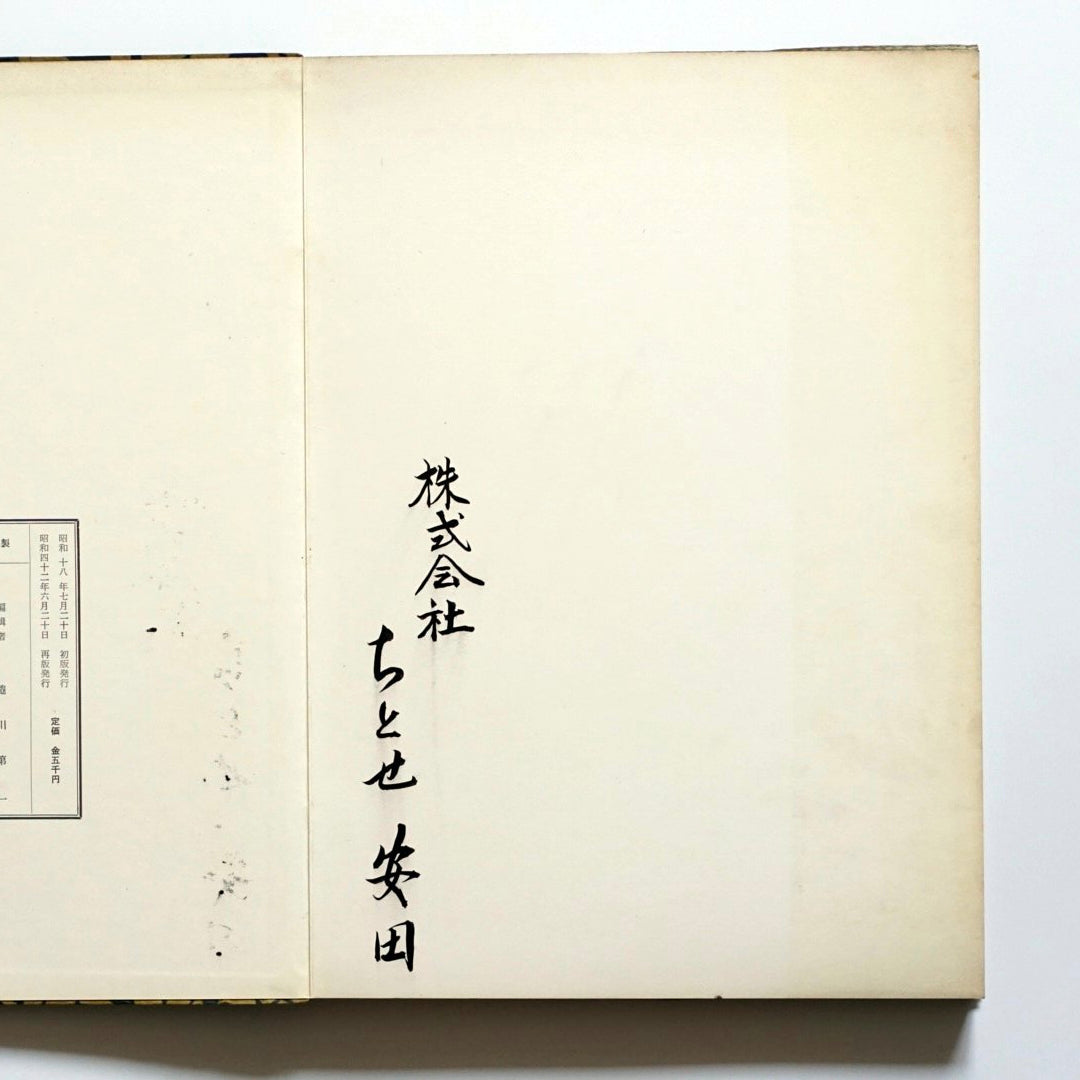 株式会社
ちとせ 安田
昭和 十八 年七月二十日 初版発行
昭和四十二年六月二十日 再版発行
定価 金五千円